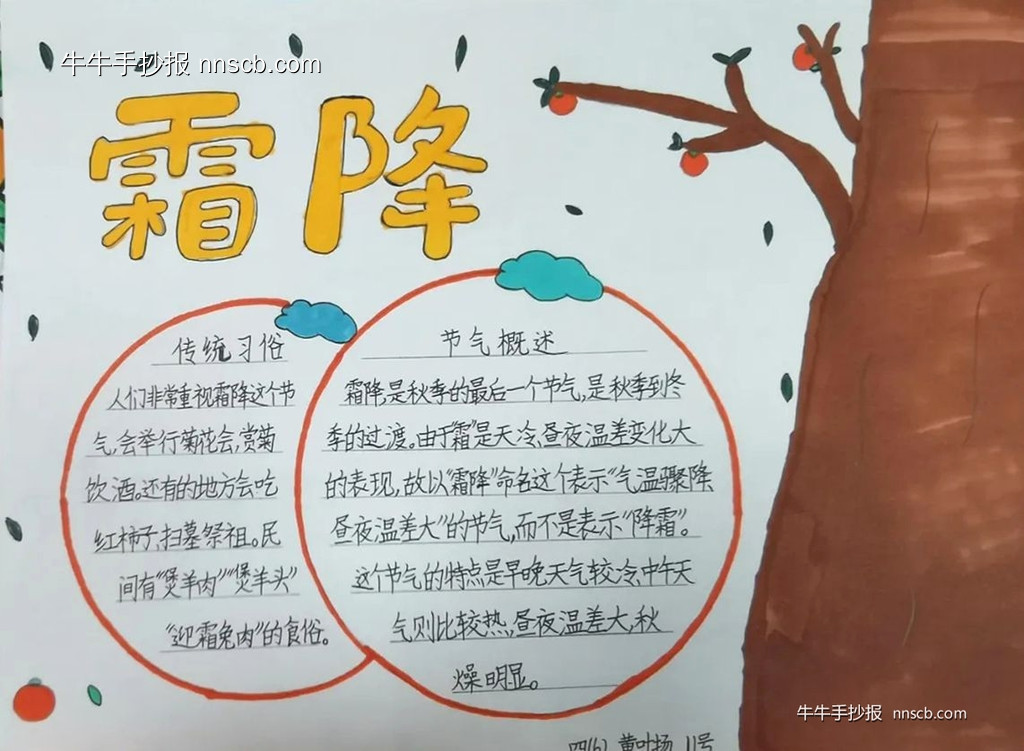 牛牛手抄报 nnscb.com
霜降
传统习俗
人们非常重视霜降这个节
气,会举行菊花会,赏菊
饮酒。还有的地方会吃
红柿子、扫墓祭祖。民
间有“煲羊肉”“煲羊头”
“迎霜兔肉”的食俗。
节气概述
霜降,是秋季的最后一个节气,是秋季到冬
季的过渡。由于“霜”是天冷、昼夜温差变化大
的表现,故以“霜降”命名这个表示“气温骤降
昼夜温差大”的节气,而不是表示“降霜”。
这个节气的特点是早晚天气较冷、中午天
气则比较热,昼夜温差大,秋
燥明显。
牛牛手抄报 nnscb.com
四(6) 黄叶扬 11号